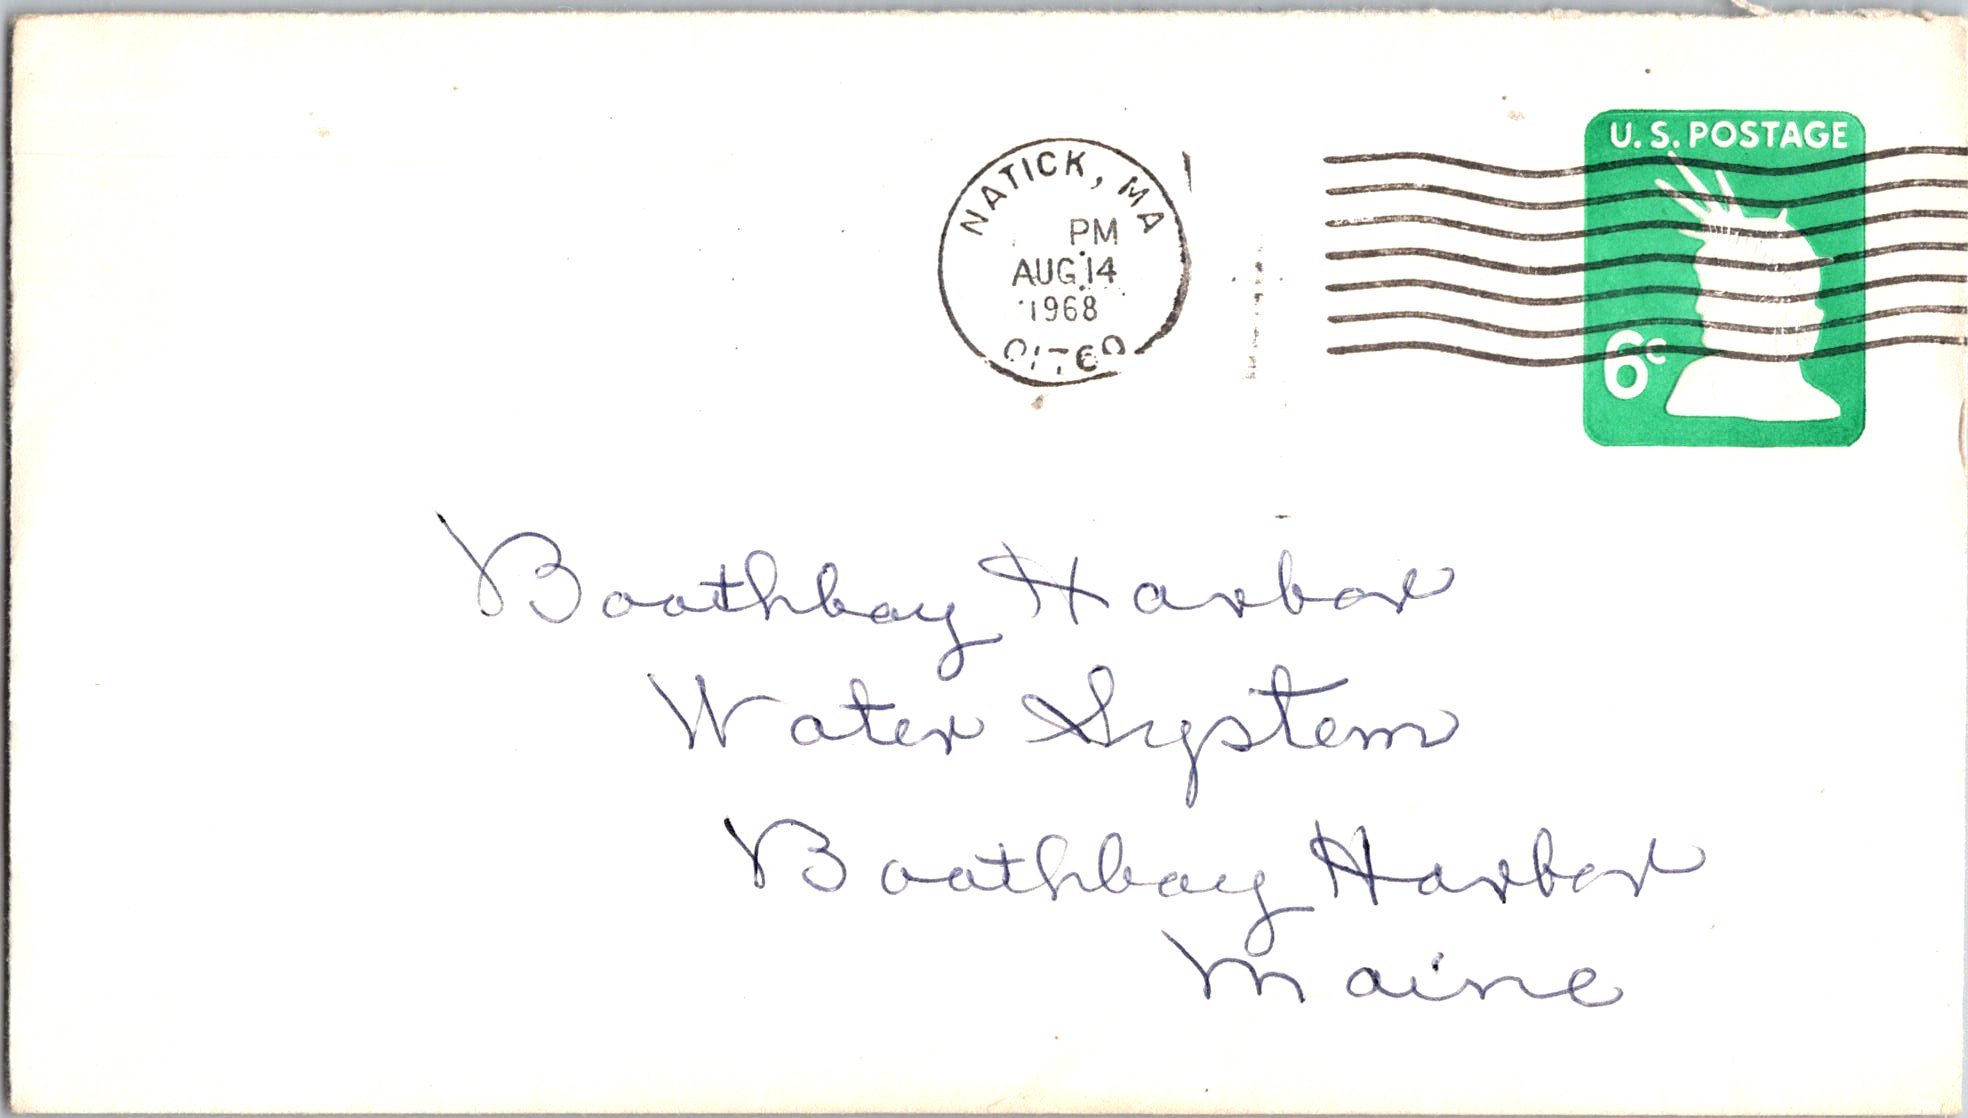 U.S. POSTAGE
6c
NATICK, MA
PM
AUG 14
1968
01760
Boothbay Harbor
Water System
Boothbay Harbor
Maine